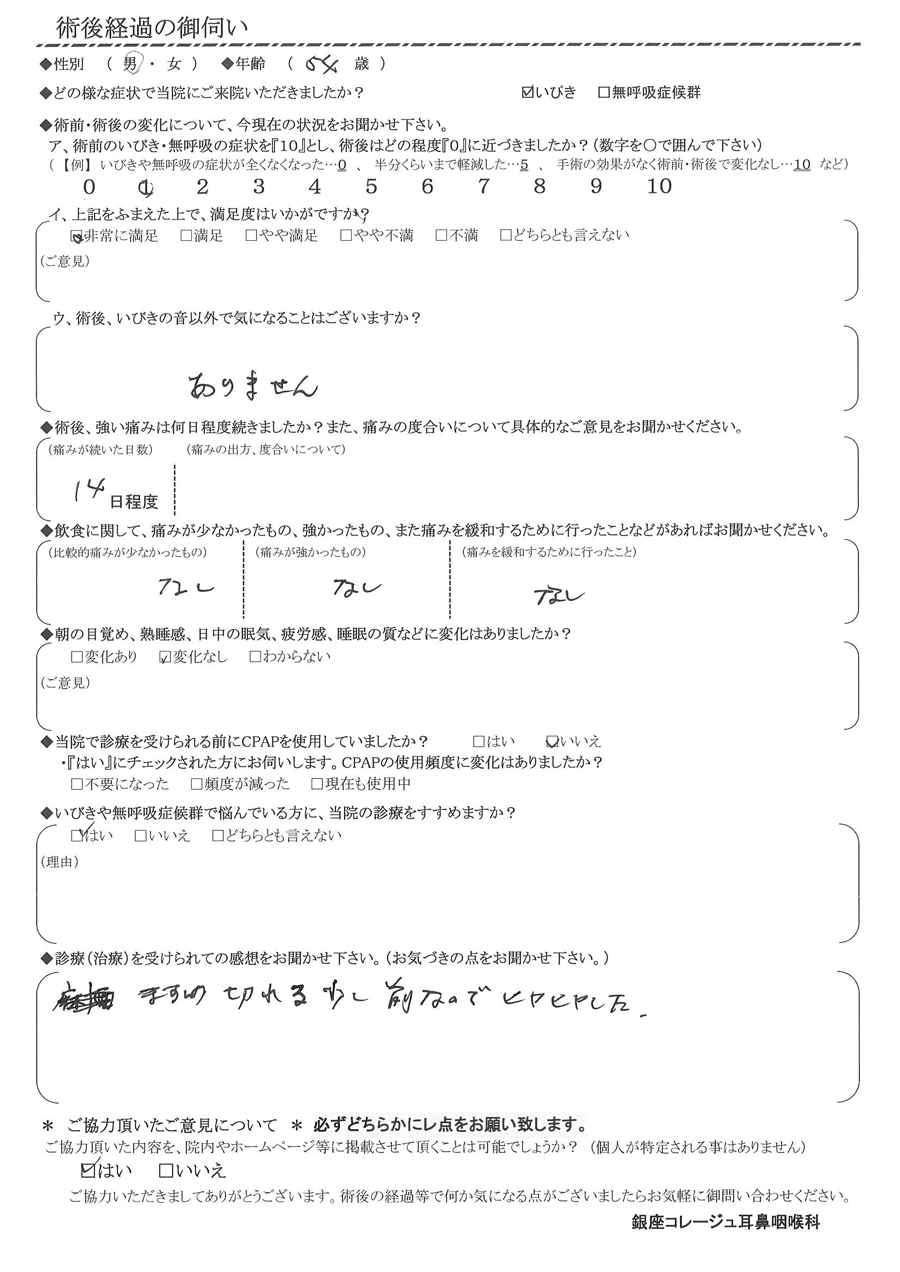 術後経過の御伺い
◆性別 ( 男 ・ 女 ) ◆年齢 ( 54 歳 )
◆どの様な症状で当院にご来院いただきましたか? ☑いびき □無呼吸症候群
◆術前・術後の変化について、今現在の状況をお聞かせ下さい。
ア、術前のいびき・無呼吸の症状を『10』とし、術後はどの程度『0』に近づきましたか?(数字を〇で囲んで下さい)
(【例】 いびきや無呼吸の症状が全くなくなった…0 、 半分くらいまで軽減した…5 、 手術の効果がなく術前・術後で変化なし…10 など)
0 1 2 3 4 5 6 7 8 9 10
イ、上記をふまえた上で、満足度はいかがですか?
☑非常に満足 □満足 □やや満足 □やや不満 □不満 □どちらとも言えない
(ご意見)
ウ、術後、いびきの音以外で気になることはございますか?
ありません
◆術後、強い痛みは何日程度続きましたか?また、痛みの度合いについて具体的なご意見をお聞かせください。
(痛みが続いた日数) (痛みの出方、度合いについて)
14 日程度
◆飲食に関して、痛みが少なかったもの、強かったもの、また痛みを緩和するために行ったことなどがあればお聞かせください。
(比較的痛みが少なかったもの) (痛みが強かったもの) (痛みを緩和するために行ったこと)
なし なし なし
◆朝の目覚め、熟睡感、日中の眠気、疲労感、睡眠の質などに変化はありましたか?
□変化あり ☑変化なし □わからない
(ご意見)
◆当院で診療を受けられる前にCPAPを使用していましたか? □はい ☑いいえ
・『はい』にチェックされた方にお伺いします。CPAPの使用頻度に変化はありましたか?
□不要になった □頻度が減った □現在も使用中
◆いびきや無呼吸症候群で悩んでいる方に、当院の診療をすすめますか?
☑はい □いいえ □どちらとも言えない
(理由)
◆診療(治療)を受けられての感想をお聞かせ下さい。(お気づきの点をお聞かせ下さい。)
ますめ 切れる 少し 前なので ヒヤヒヤした.
＊ ご協力頂いたご意見について ＊ 必ずどちらかにレ点をお願い致します。
ご協力頂いた内容を、院内やホームページ等に掲載させて頂くことは可能でしょうか? (個人が特定される事はありません)
☑はい □いいえ
ご協力いただきましてありがとうございます。術後の経過等で何か気になる点がございましたらお気軽に御問い合わせください。
銀座コレージュ耳鼻咽喉科